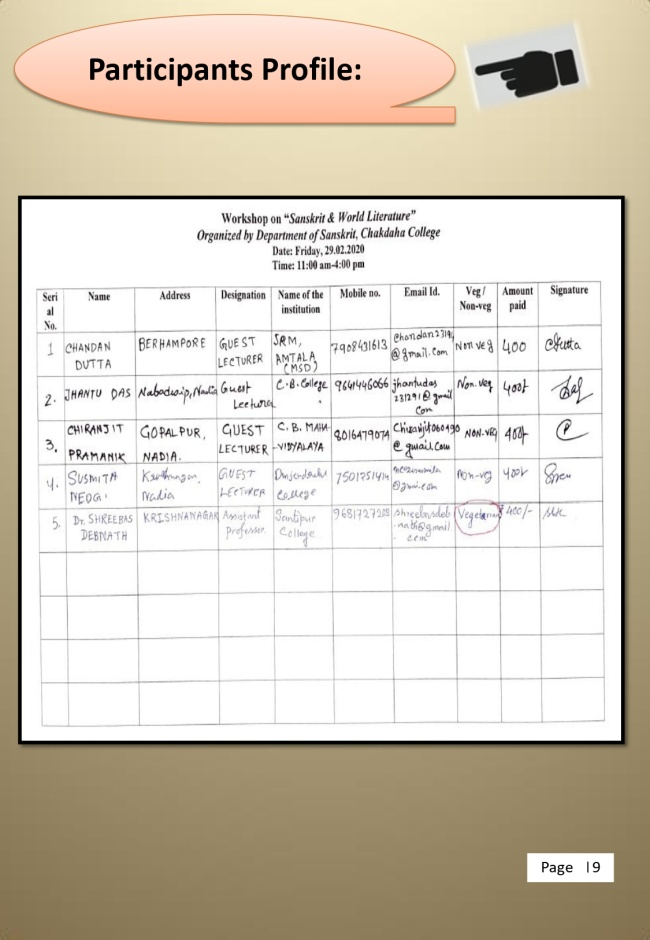 Participants Profile:
Workshop on "Sanskrit & World Literature"
Organized by Department of Sanskrit, Chakdaha College
Date: Friday, 29.02.2020
Time: 11:00 am-4:00 pm
Seri al No. Name Address Designation Name of the institution Mobile no. Email Id. Veg / Non-veg Amount paid Signature
1 CHANDAN DUTTA BERHAMPORE GUEST LECTURER SRM, AMTALA (MSD) 7908431613 @ gmail.com Non veg 400
2. JHANTU DAS Nabadwip, Nadia Guest Lecturer C.B. College jhantudas 231291@gmail com Non. veg 400/-
3. CHIRANJIT PRAMANIK GOPALPUR, NADIA. GUEST LECTURER C. B. MAHA -VIDYALAYA 8016479074 Chiranjit060490 @ gmail.com NON-VEG 400/-
4. SUSMITA NEOGI Nadia GUEST LECTURER College Non-veg 400/-
5. Dr. SHREEBAS DEBNATH KRISHNANAGAR Assistant Professor. Santipur College shreebasdeb -nath@gmail .com Vegetarian 400/-
Page |9